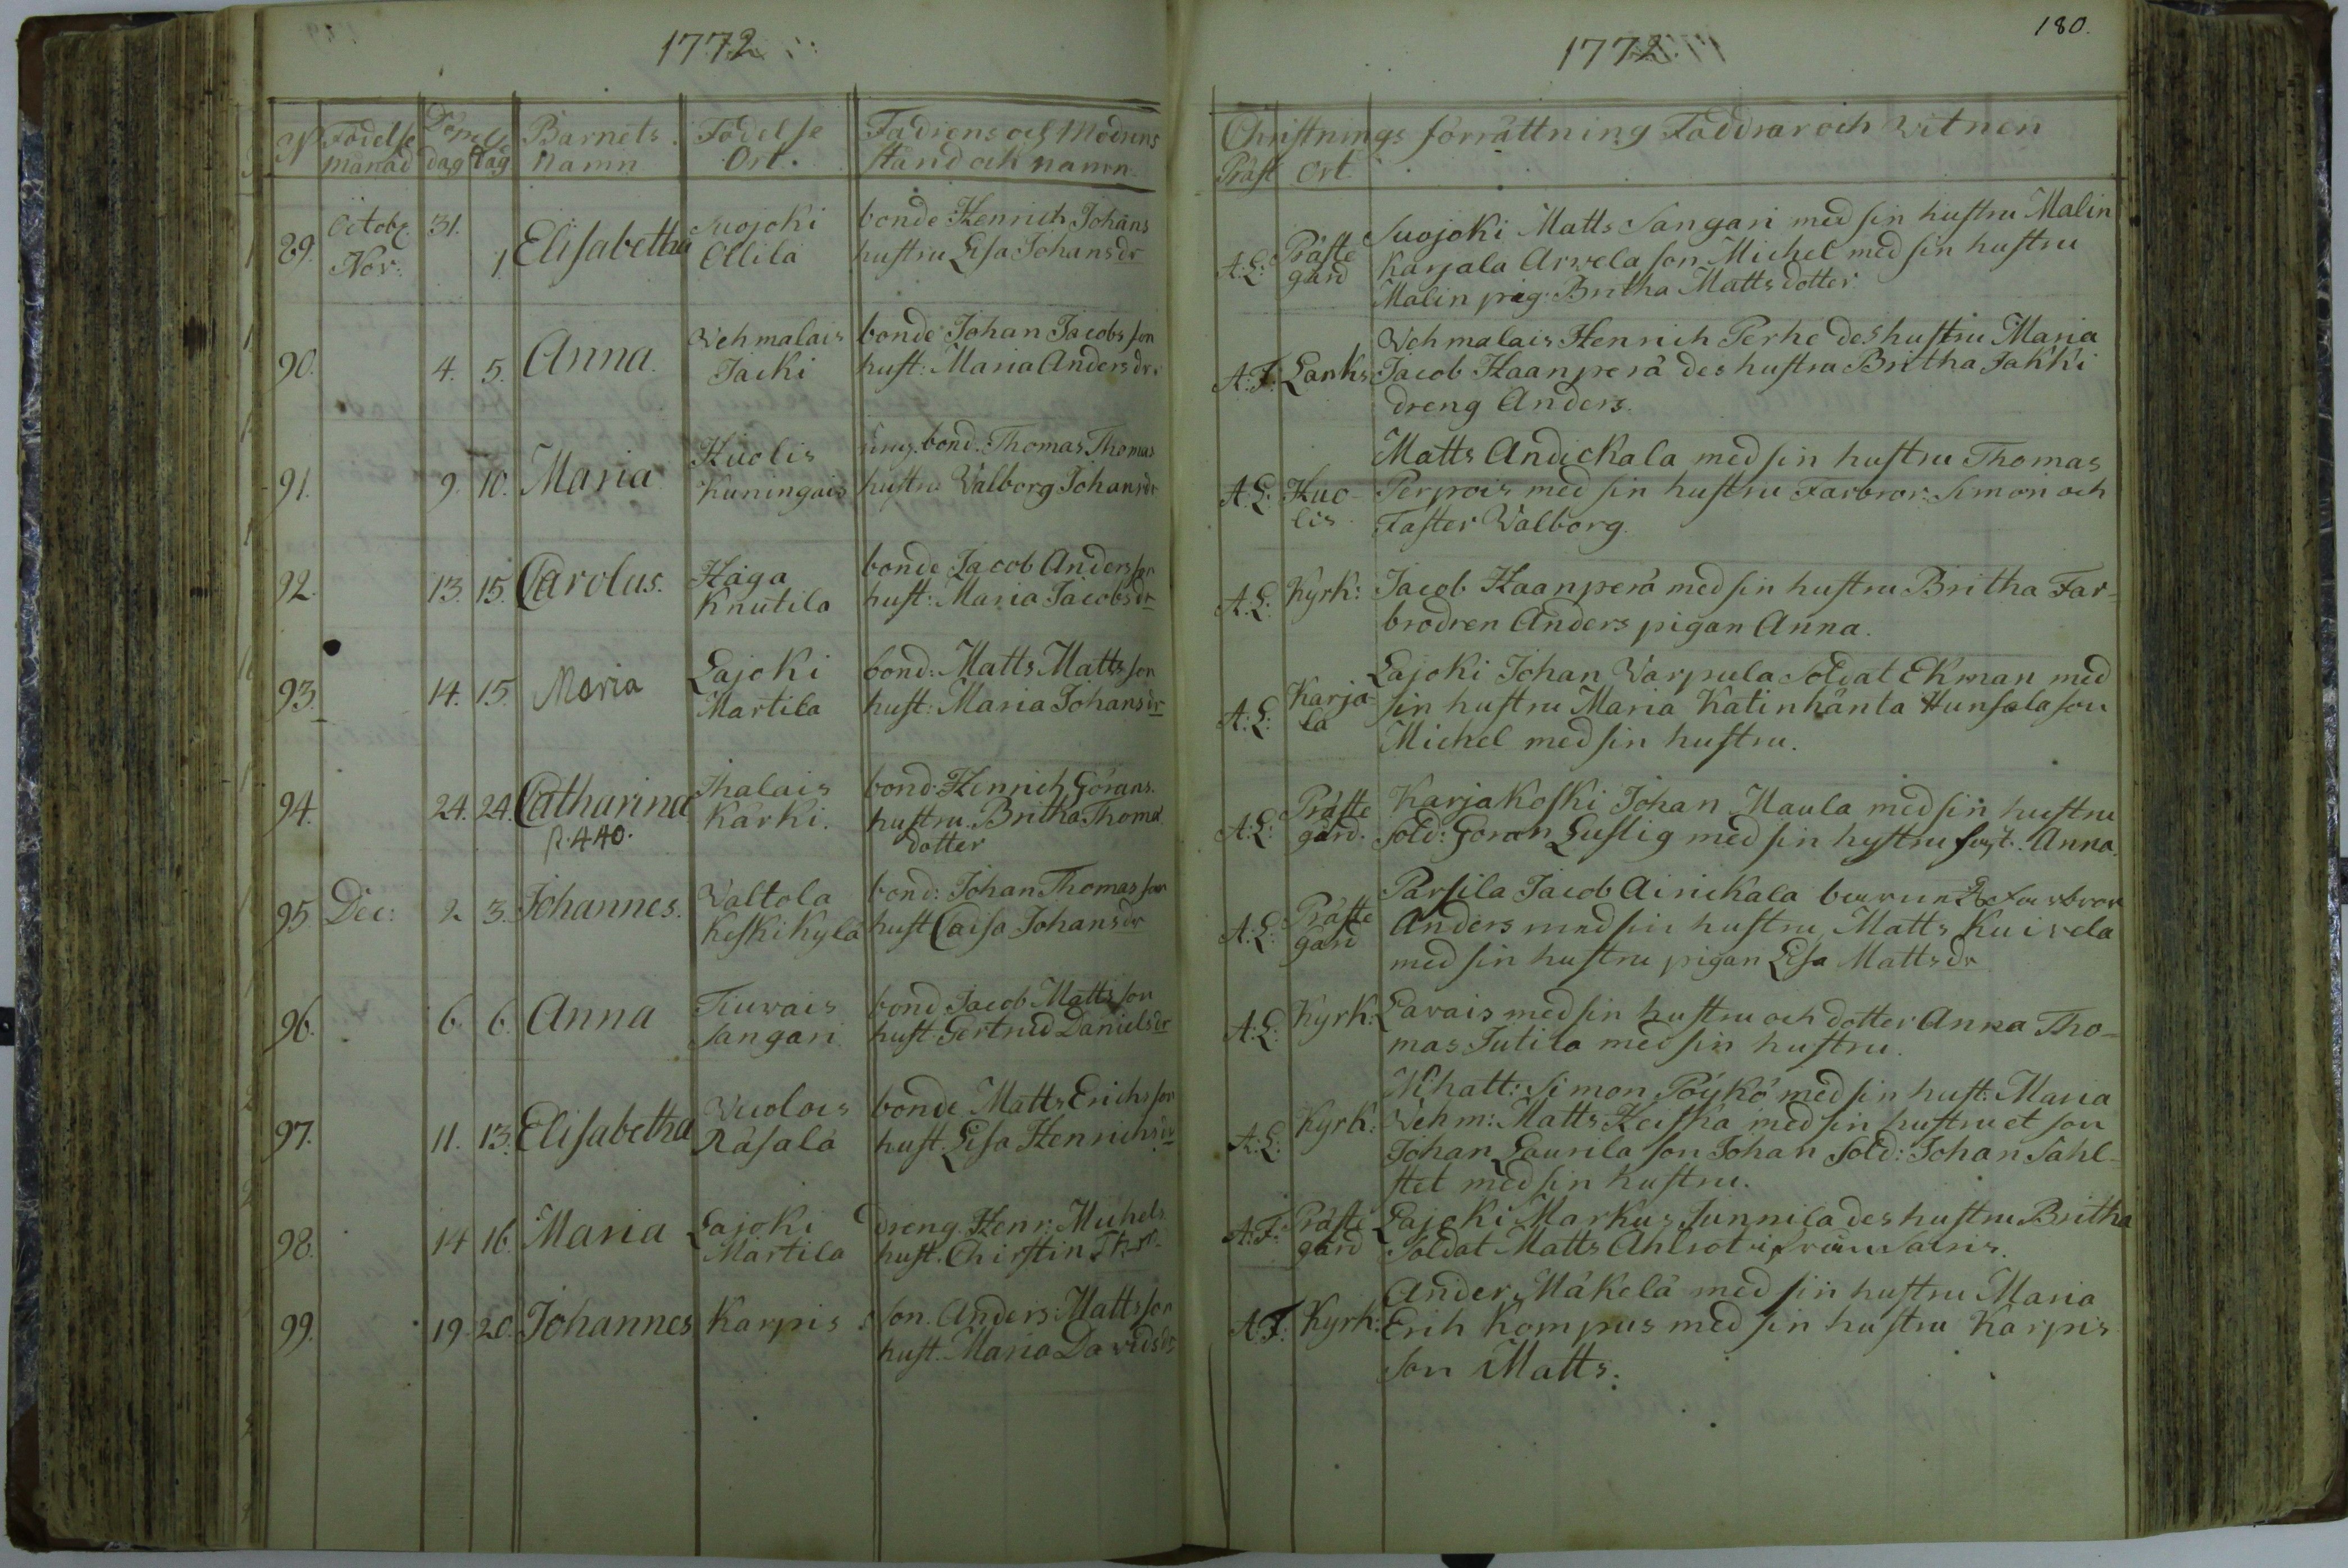 1772
No Födelse månad dag Döpelse dag Barnets Namn Födelse Ort. Fadrens och Modrens stånd och namn
89. Octobr 31. Elisabetha Suojoki bonde Henrich Johans
Nov: 1. Ollila hustru Lisa Johansdr
90. 4. 5. Anna. Vehmalais bonde Johan Jacobsson
Jacki hust: Maria Andersdr.
91. 9. 10. Maria Huolis bond. Thomas Thomas
Kuningais hustru Walborg Johansdr
92. 13. 15. Carolus. Haga bonde Jacob Andersson
Knutila hust: Maria Jacobsdr
93. 14. 15. Maria Lajoki bond: Matts Mattsson
Martila hust: Maria Johansdr
94. 24. 24. Catharina Ihalais bond: Henrich Görans.
p. 440. Kärki. hustru Britha Thomæ
dotter
95 Dec: 2. 3. Johannes. Valtola bond: Johan Thomasson
Keskikylä hust Caisa Johansdr
96. 6. 6. Anna Tiuvais bond Jacob Mattsson
Sangari hust Gertrud Danielsdr
97. 11. 13. Elisabetha Vuolois bonde Matts Erichsson
Räsälä hust. Lisa Henrichsdr
98. 14 16. Maria Lajoki dreng. Henr: Michels
Martila hust. Chirstin
99. 19. 20. Johannes Karpis son Anders Mattsson
hust. Maria Davidsdr
180.
1772
Christnings förrättning Faddrar och Witnen
Präst Ort
Suojoki Matts Sangari med sin hustru Malin
A: L: Präste Karjala Arvela son Michel med sin hustru
gård Malin pig. Britha Mattsdotter
Vehmalais Henrich Perhe des hustru Maria
A: F: Lanks Jacob Haanperä des hustru Britha Jakki
dreng Anders.
Matts Andickala med sin hustru Thomas
A: L: Huo- Perpois med sin hustru Farbror Simon och
lis Faster Walborg.
A: L: Kyrk: Jacob Haanperä med sin hustru Britha Far-
brodren Anders pigan Anna.
Lajoki Johan Varpula Soldat Ekman med
A: L: Karja- sin hustru Maria Katinhänta Hunsala son
la Michel med sin hustru.
A: L: Präste Karjakoski Johan Naula med sin hustru
gård. Sold: Goran Lustig med sin hustru Anna.
Parsila Jacob Airickala farbror
A: L: Präste Anders med sin hustru, Matts Kuivela
gård med sin hustru pigan Lisa Mattsdr
A: L: Kyrk: Lavais med sin hustru och dotter Anna Tho-
mas Jutila med sin hustru.
Nihatt: Simon Pöykö med sin hust: Maria
A: L: Kyrk: Vehm: Matts Keiska med sin hustru et son
Johan Laurila son Johan Sold: Johan Sahl-
stet med sin hustru.
A: F: Präste Lajoki Markus Junnila des hustru Britha
gård Soldat Matts
Anders Mäkelä med sin hustru Maria
A: F: Kyrk: Erih Kompus med sin hustru Karpis
son Matts.